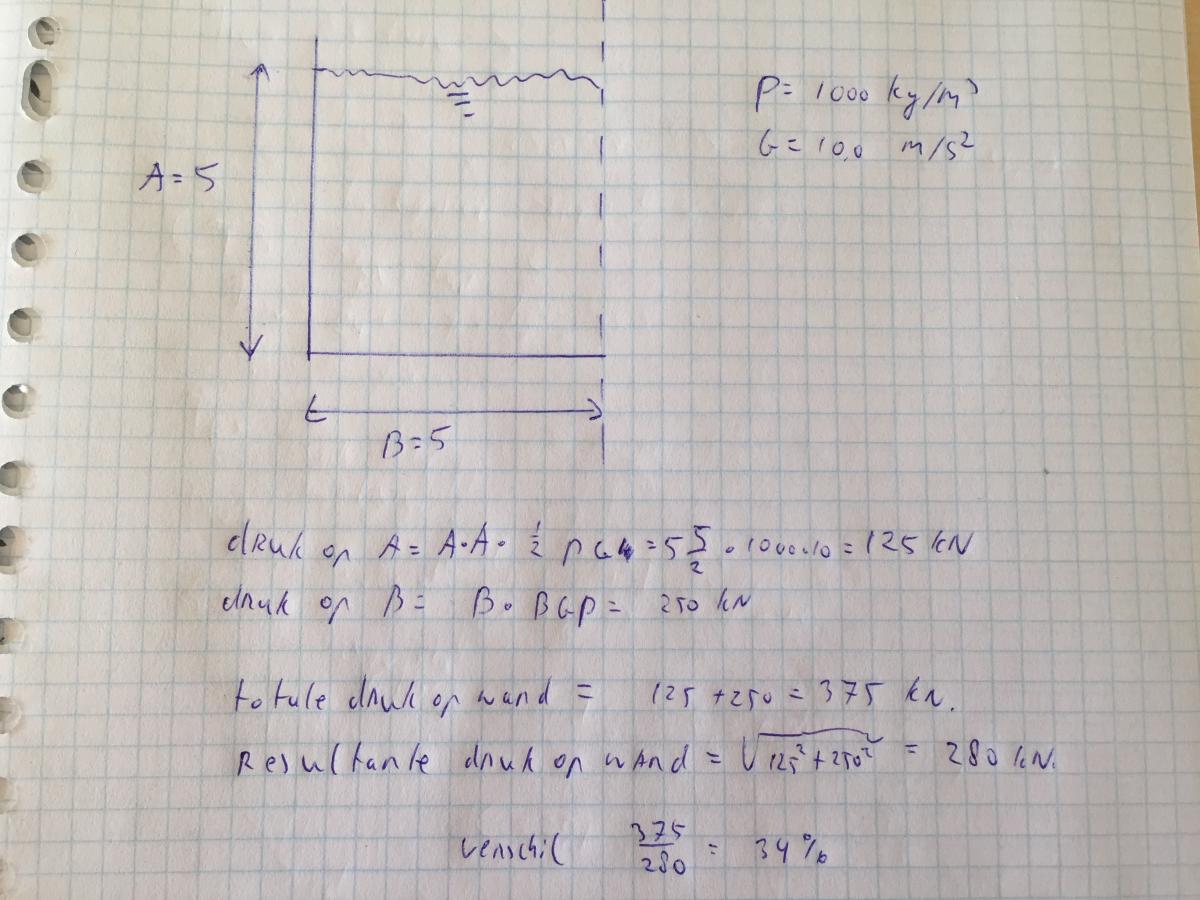 A = 5
P = 1000 kg/m³
G = 10,0 m/s²
B = 5
druk op A = A·A· ½ P G = 5 5/2 · 1000·10 = 125 kN
druk op B = B · B G P = 250 kN
totale druk op wand = 125 + 250 = 375 kN.
Resultante druk op wand = √125² + 250² = 280 kN.
verschil 375/280 = 34%